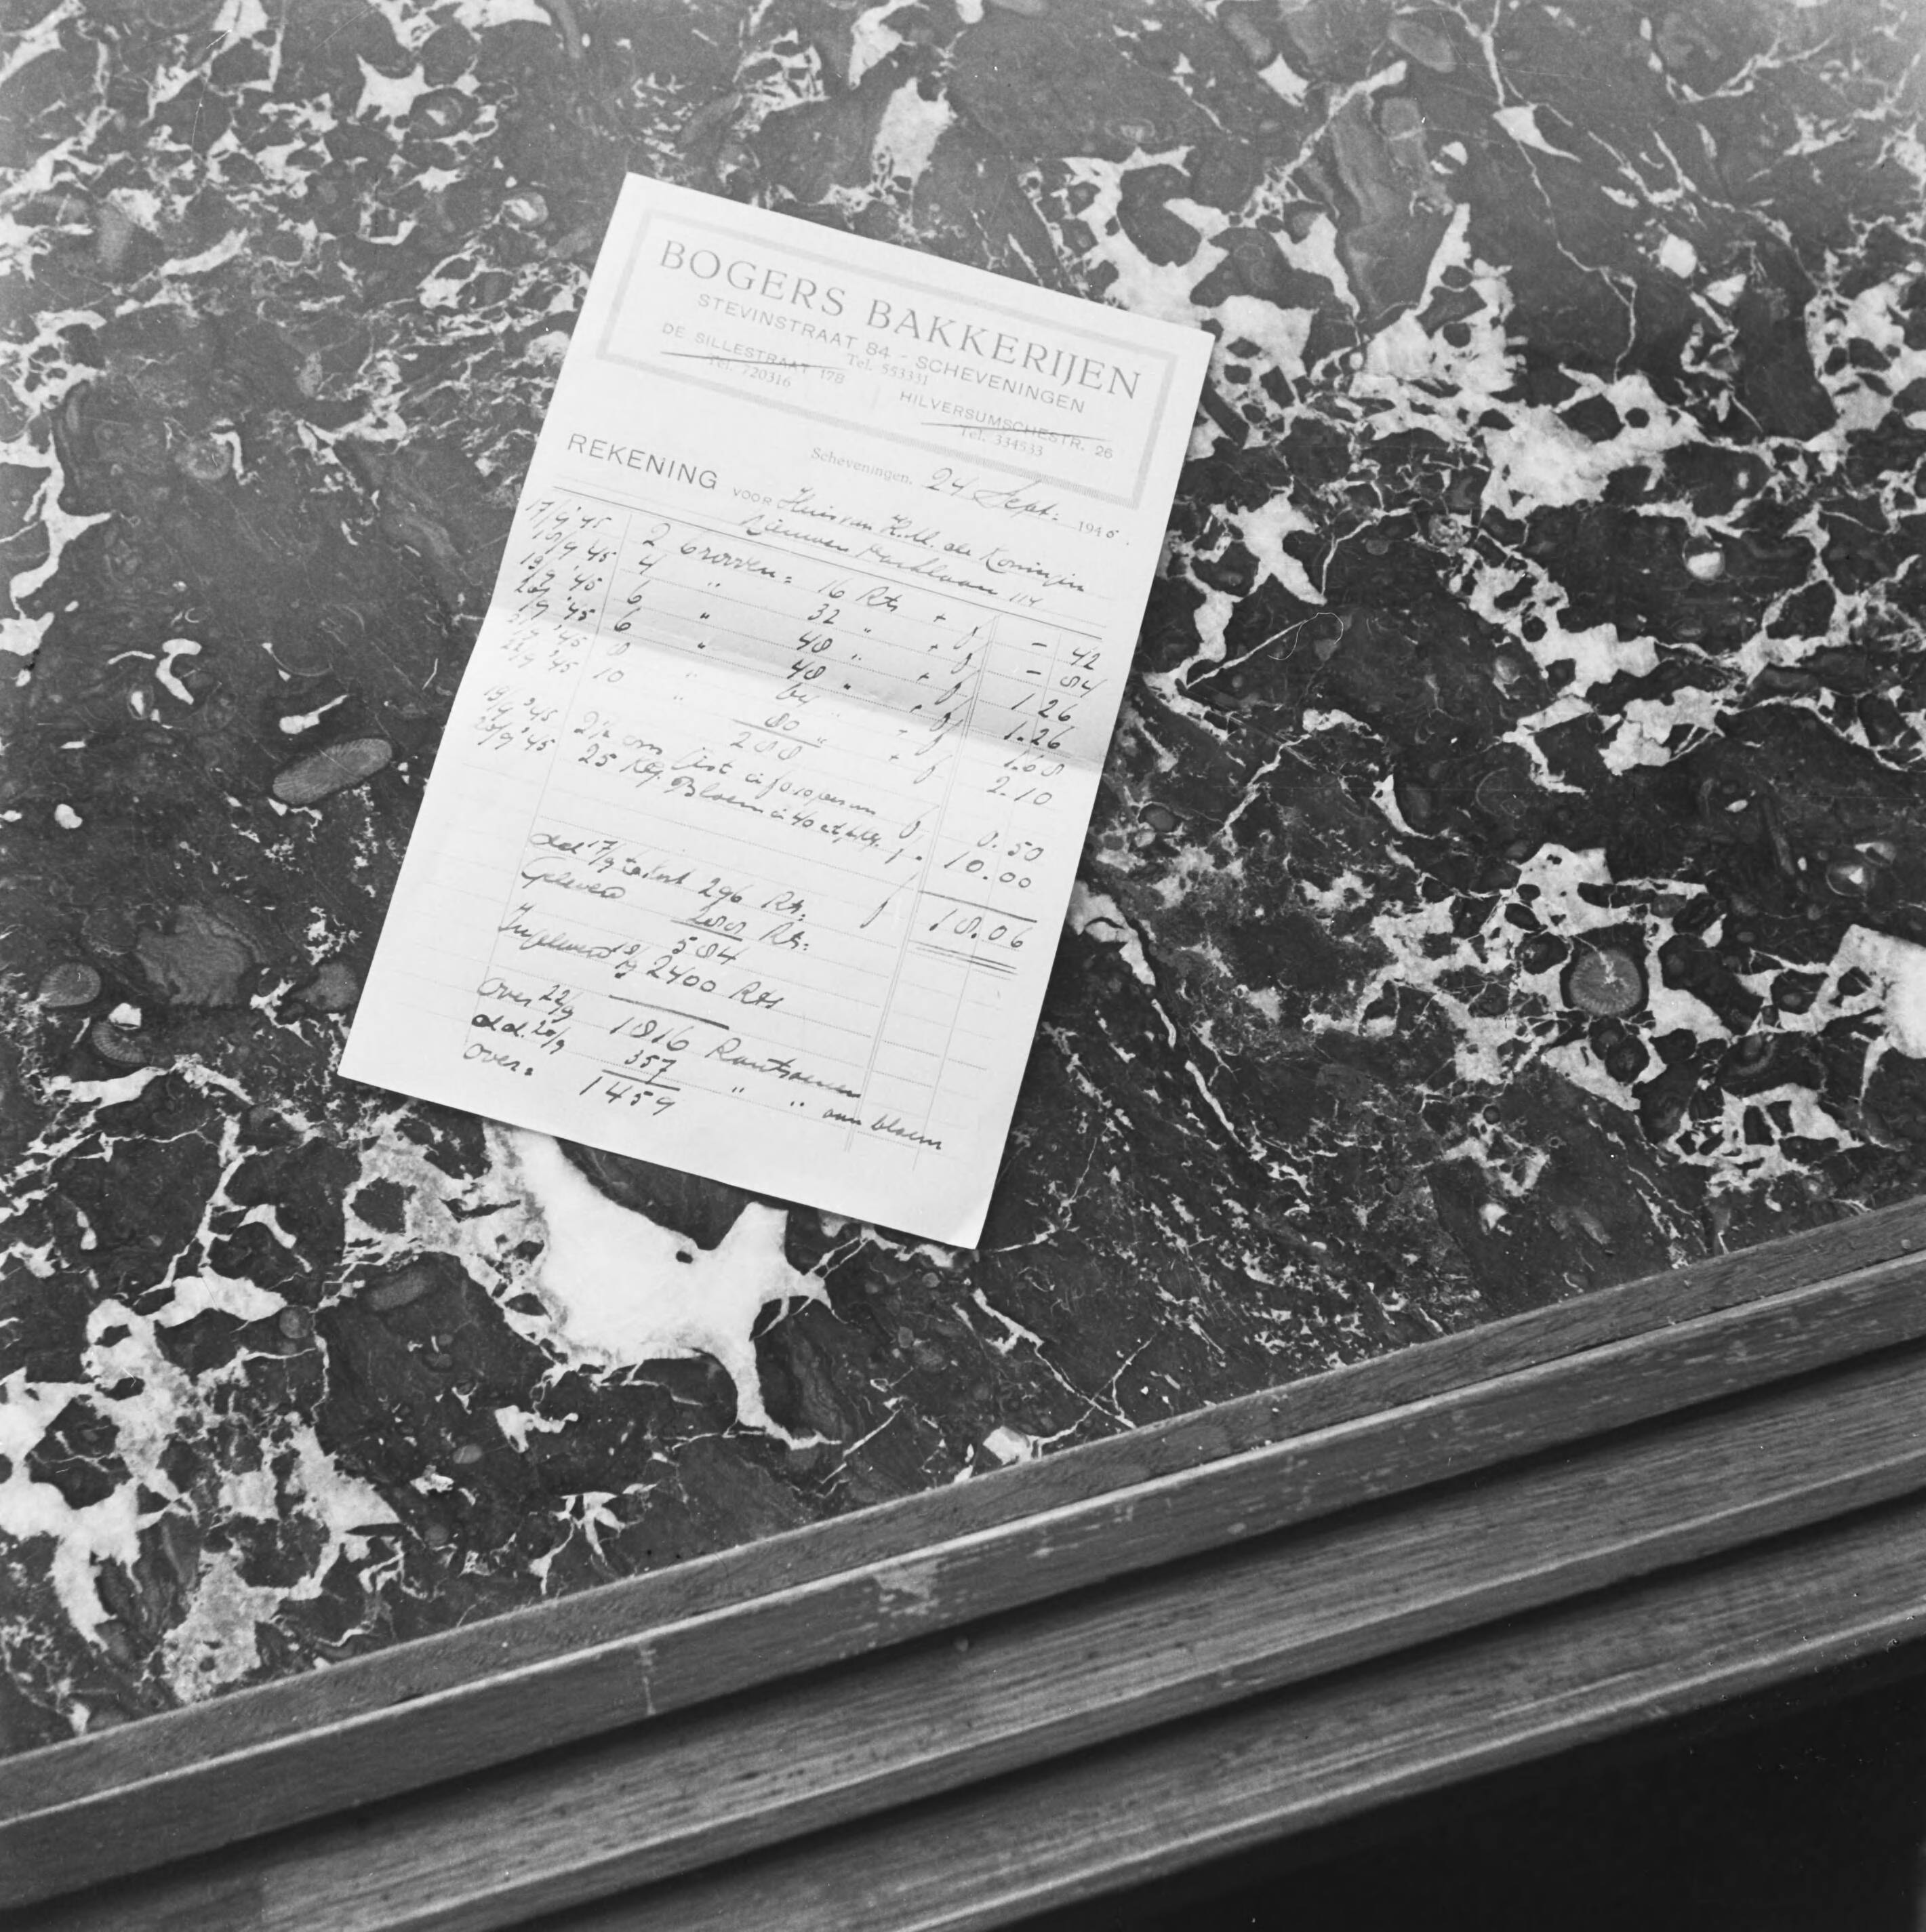 BOGERS BAKKERIJEN
STEVINSTRAAT 84 - SCHEVENINGEN
Tel. 553331
DE SILLESTRAAT 178
Tel. 720316
HILVERSUMSCHESTR. 26
Tel. 334533
Scheveningen, 24 Sept. 1945.
REKENING VOOR Huis van H.M. de Koningin
Nieuwe Parklaan 114
17/9 '45 2 brooden = 16 Rts + f - 42
18/9 '45 4 " 32 " + f - 84
19/9 '45 6 " 48 " + f 1.26
20/9 '45 6 " 48 " + f 1.26
'45 8 " 64 " + f 1.68
22/9 '45 10 " 80 " + f 2.10
288
19/9 '45 2½ ons Gist f 0.50
20/9 '45 25 Kg. Bloem à 40 ct p. Kg. f 10.00
f 18.06
dd 17/9 296 Rts:
Geleverd 288 Rts:
584
Ingeleverd 19/9 2400 Rts
Over 22/9 1816 Rantsoenen
dd. 20/9 357 " " aan bloem
Over: 1459